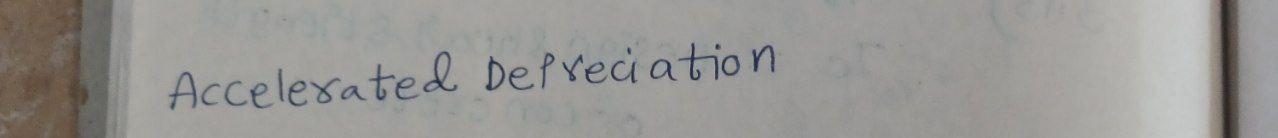 Accelerated Depreciation